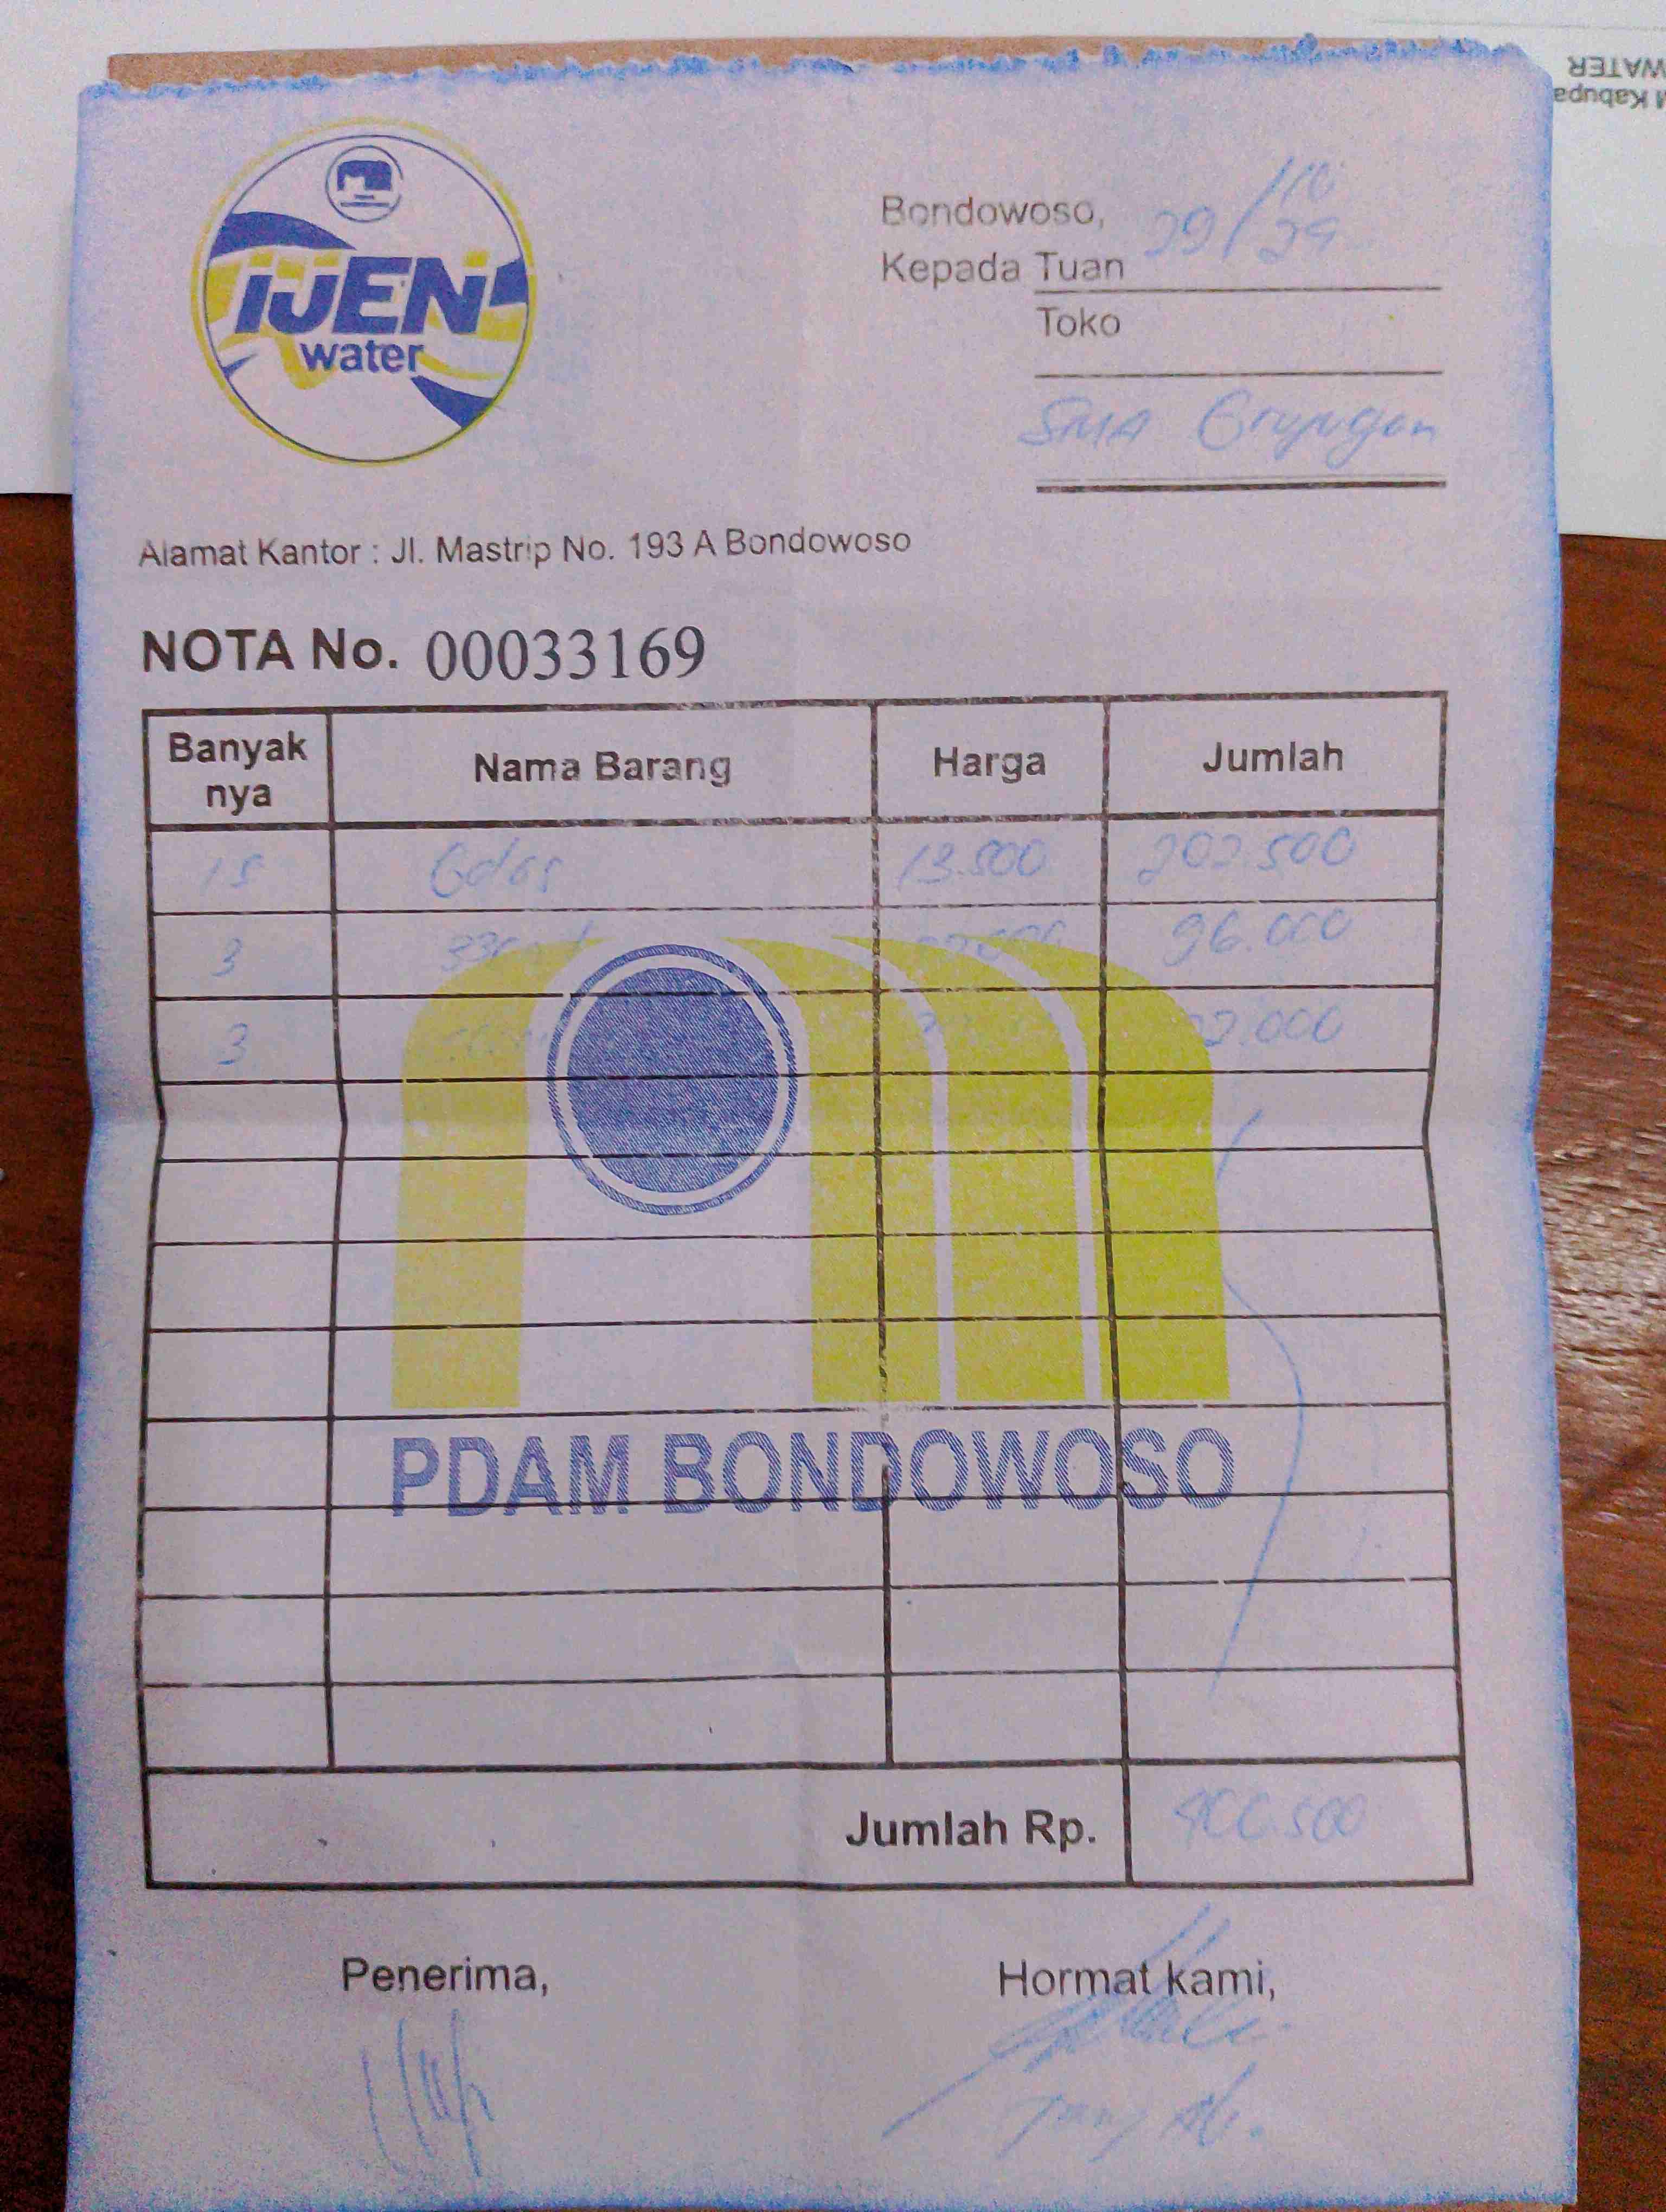 WATER
IJEN
water
Bondowoso, 29/10
Kepada Tuan
Toko
SMA Grujugan
Alamat Kantor : Jl. Mastrip No. 193 A Bondowoso
NOTA No. 00033169
Banyak nya Nama Barang Harga Jumlah
15 Gelas 13.500 202.500
3 96.000
3
PDAM BONDOWOSO
Jumlah Rp. 400.500
Penerima, Hormat kami,